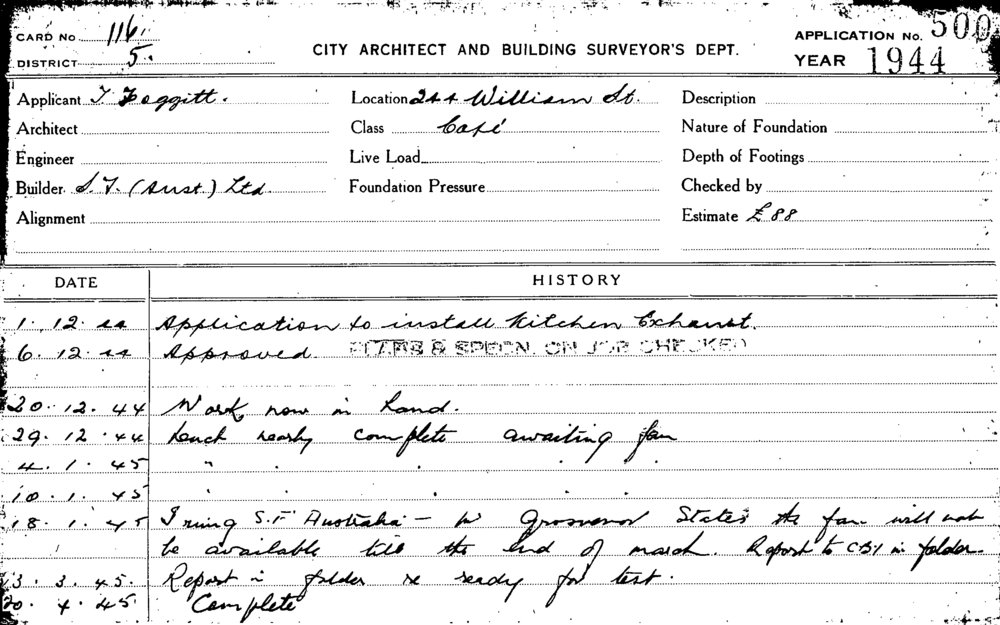 CARD No 116
DISTRICT 5.
CITY ARCHITECT AND BUILDING SURVEYOR'S DEPT.
APPLICATION No. 500
YEAR 1944
Applicant T Foggitt. Location 244 William St. Description
Architect Class Café Nature of Foundation
Engineer Live Load Depth of Footings
Builder S.F. (Aust.) Ltd. Foundation Pressure Checked by
Alignment Estimate £88
DATE HISTORY
1. 12. 44 Application to install Kitchen Exhaust.
6. 12. 44 Approved. PLANS & SPECN. ON JOB CHECKED
20. 12. 44 Work now in hand.
29. 12. 44 nearly complete awaiting fan
4. 1. 45 " . . . .
10. 1. 45 " . . . .
18. 1. 45 I rung S.F Australia - Mr Grosvenor States the fan will not
be available till the end of march. Report to CBI in folder.
13. 3. 45. Report in folder re ready for test.
20. 4. 45 Complete